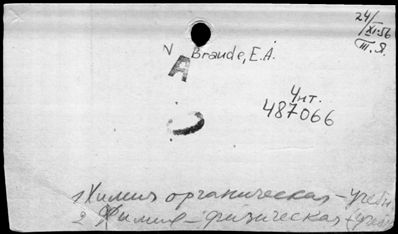 24/
XI-56
III. Я.
V Braude, E.A.
A
Чит.
487066
1 Химия органическая - учебн
2 Химия - физическая (учебн